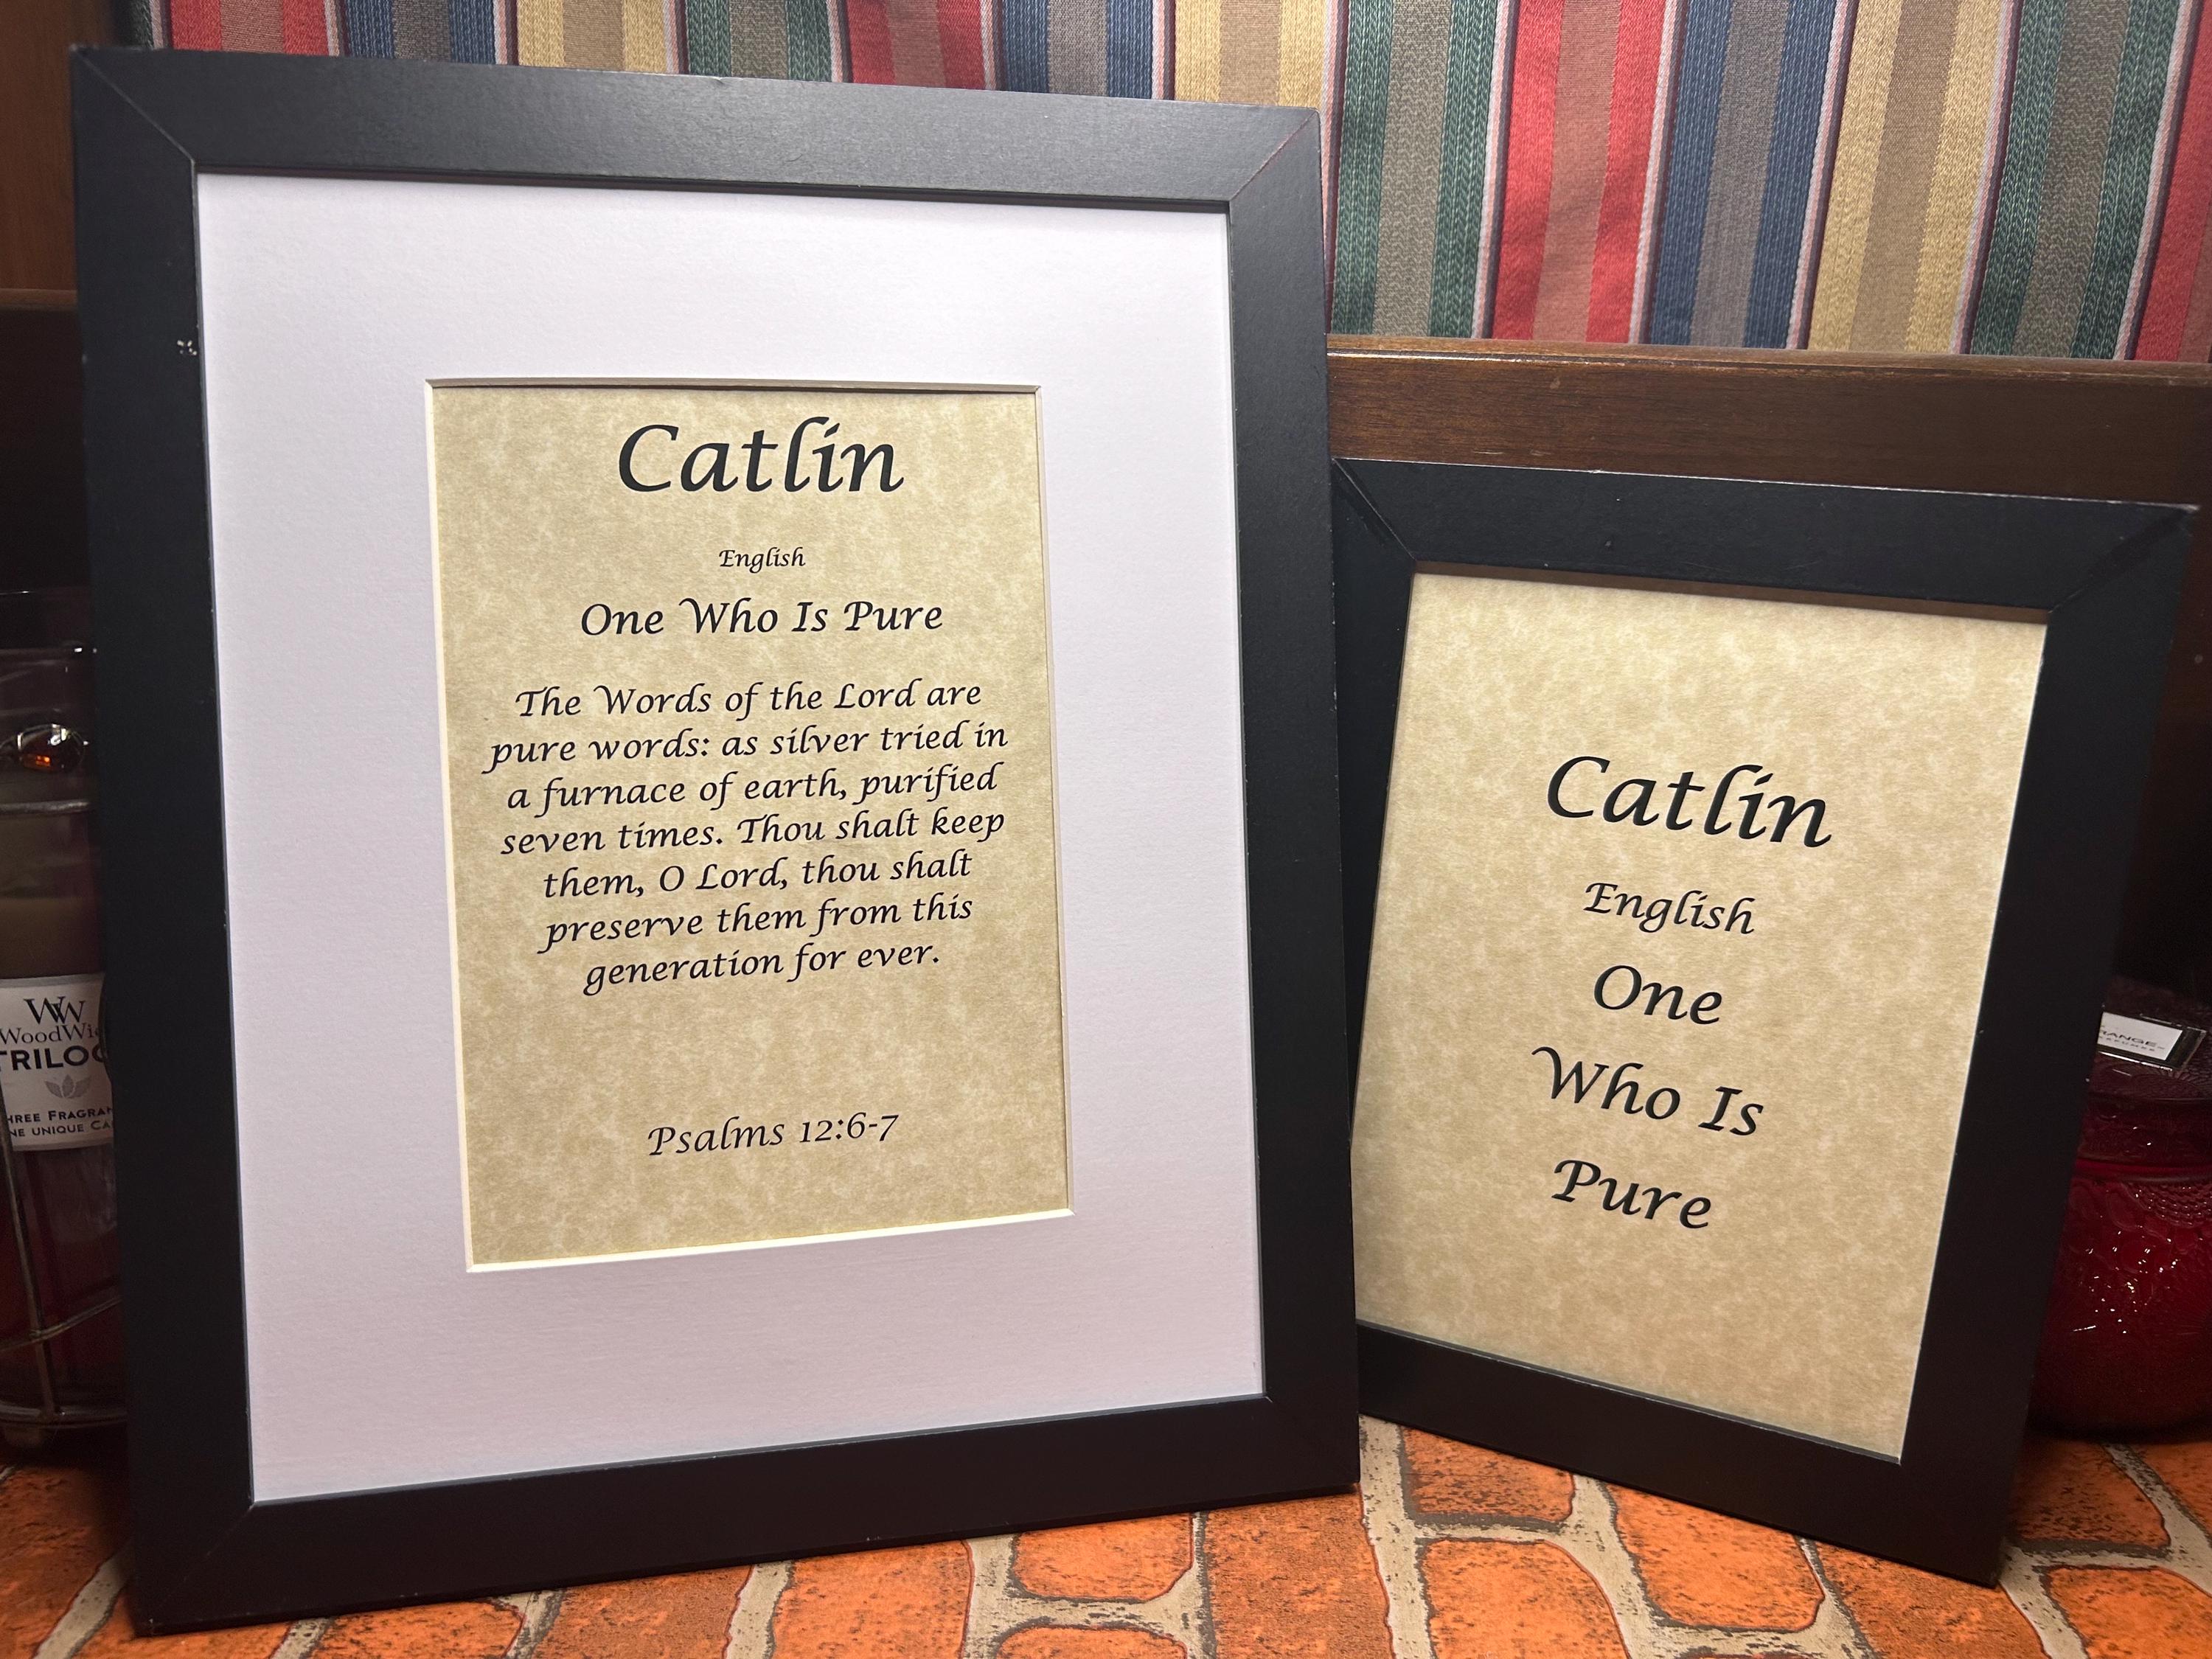 Catlin
English
One Who Is Pure
The Words of the Lord are
pure words: as silver tried in
a furnace of earth, purified
seven times. Thou shalt keep
them, O Lord, thou shalt
preserve them from this
generation for ever.
Psalms 12:6-7
Catlin
English
One
Who Is
Pure
WW
WoodWi
TRILO